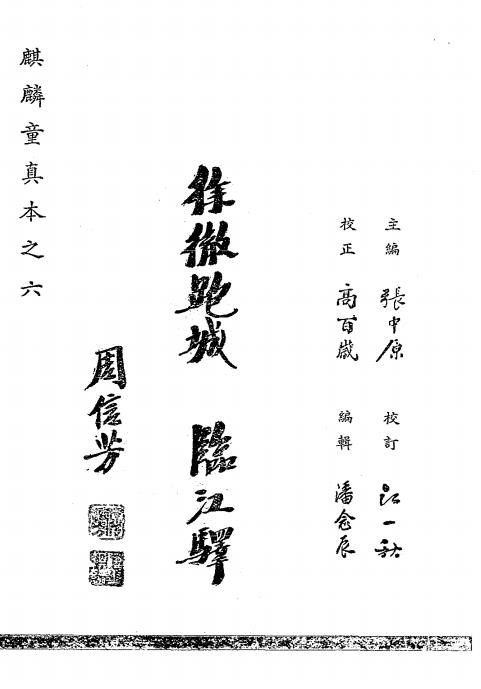 主編 張中原 校訂 江一秋
校正 高百歲 編輯 潘念辰
徐徹跑城 臨江驛
周信芳
麒麟童真本之六